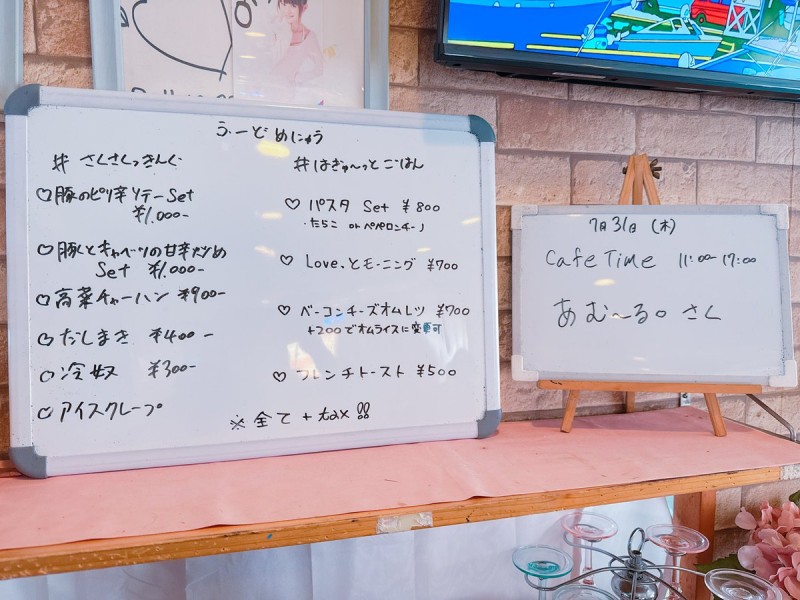 ふーどめにゅう
# さくさくっきんぐ
♡豚のピリ辛ソテーSet
¥1,000-
♡豚とキャベツの甘辛炒め
Set ¥1,000-
♡高菜チャーハン ¥900-
♡だしまき ¥400-
♡冷奴 ¥300-
♡アイスクレープ
#はぎゅ〜っとごはん
♡パスタ Set ¥800
・たらこ or ペペロンチーノ
♡Love.とモーニング ¥700
♡ベーコンチーズオムレツ ¥700
+200でオムライスに変更可
♡フレンチトースト ¥500
※全て+tax!!
7月31日(木)
Cafe Time 11:00-17:00
あむ〜る。さく